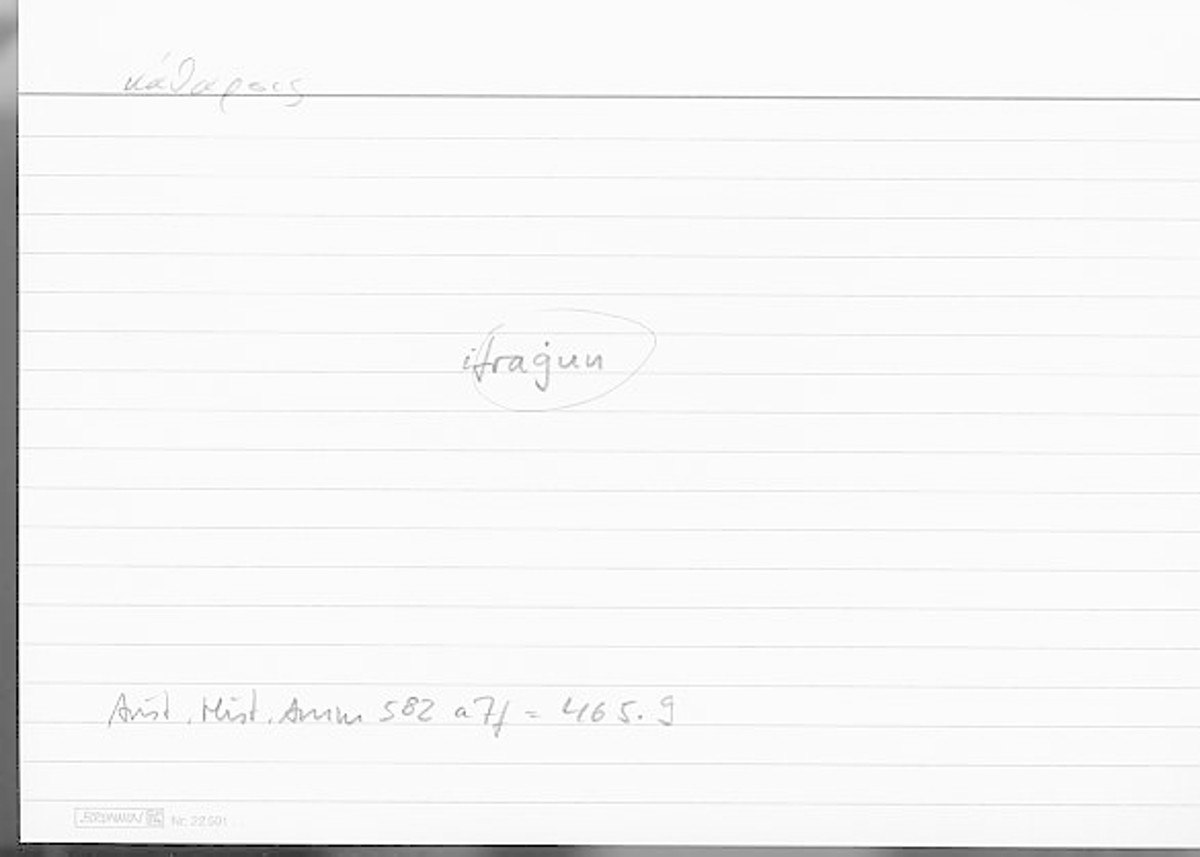 κάθαρσις
ifraġun
Arist. Hist. Anim 582 a7f = 465.9
BRUNNEN Nr. 22 501